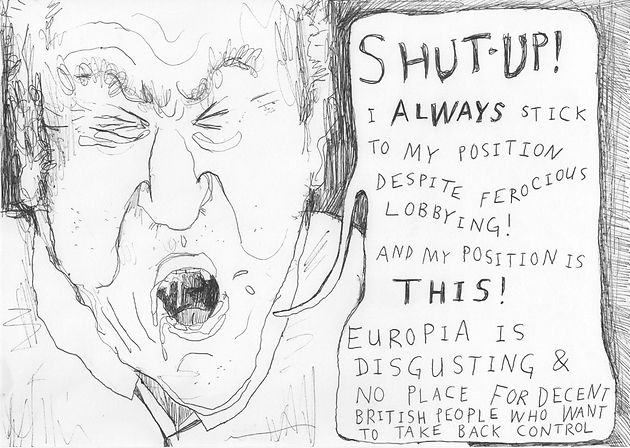 SHUT-UP!
I ALWAYS STICK
TO MY POSITION
DESPITE FEROCIOUS
LOBBYING!
AND MY POSITION IS
THIS!
EUROPIA IS
DISGUSTING &
NO PLACE FOR DECENT
BRITISH PEOPLE WHO WANT
TO TAKE BACK CONTROL